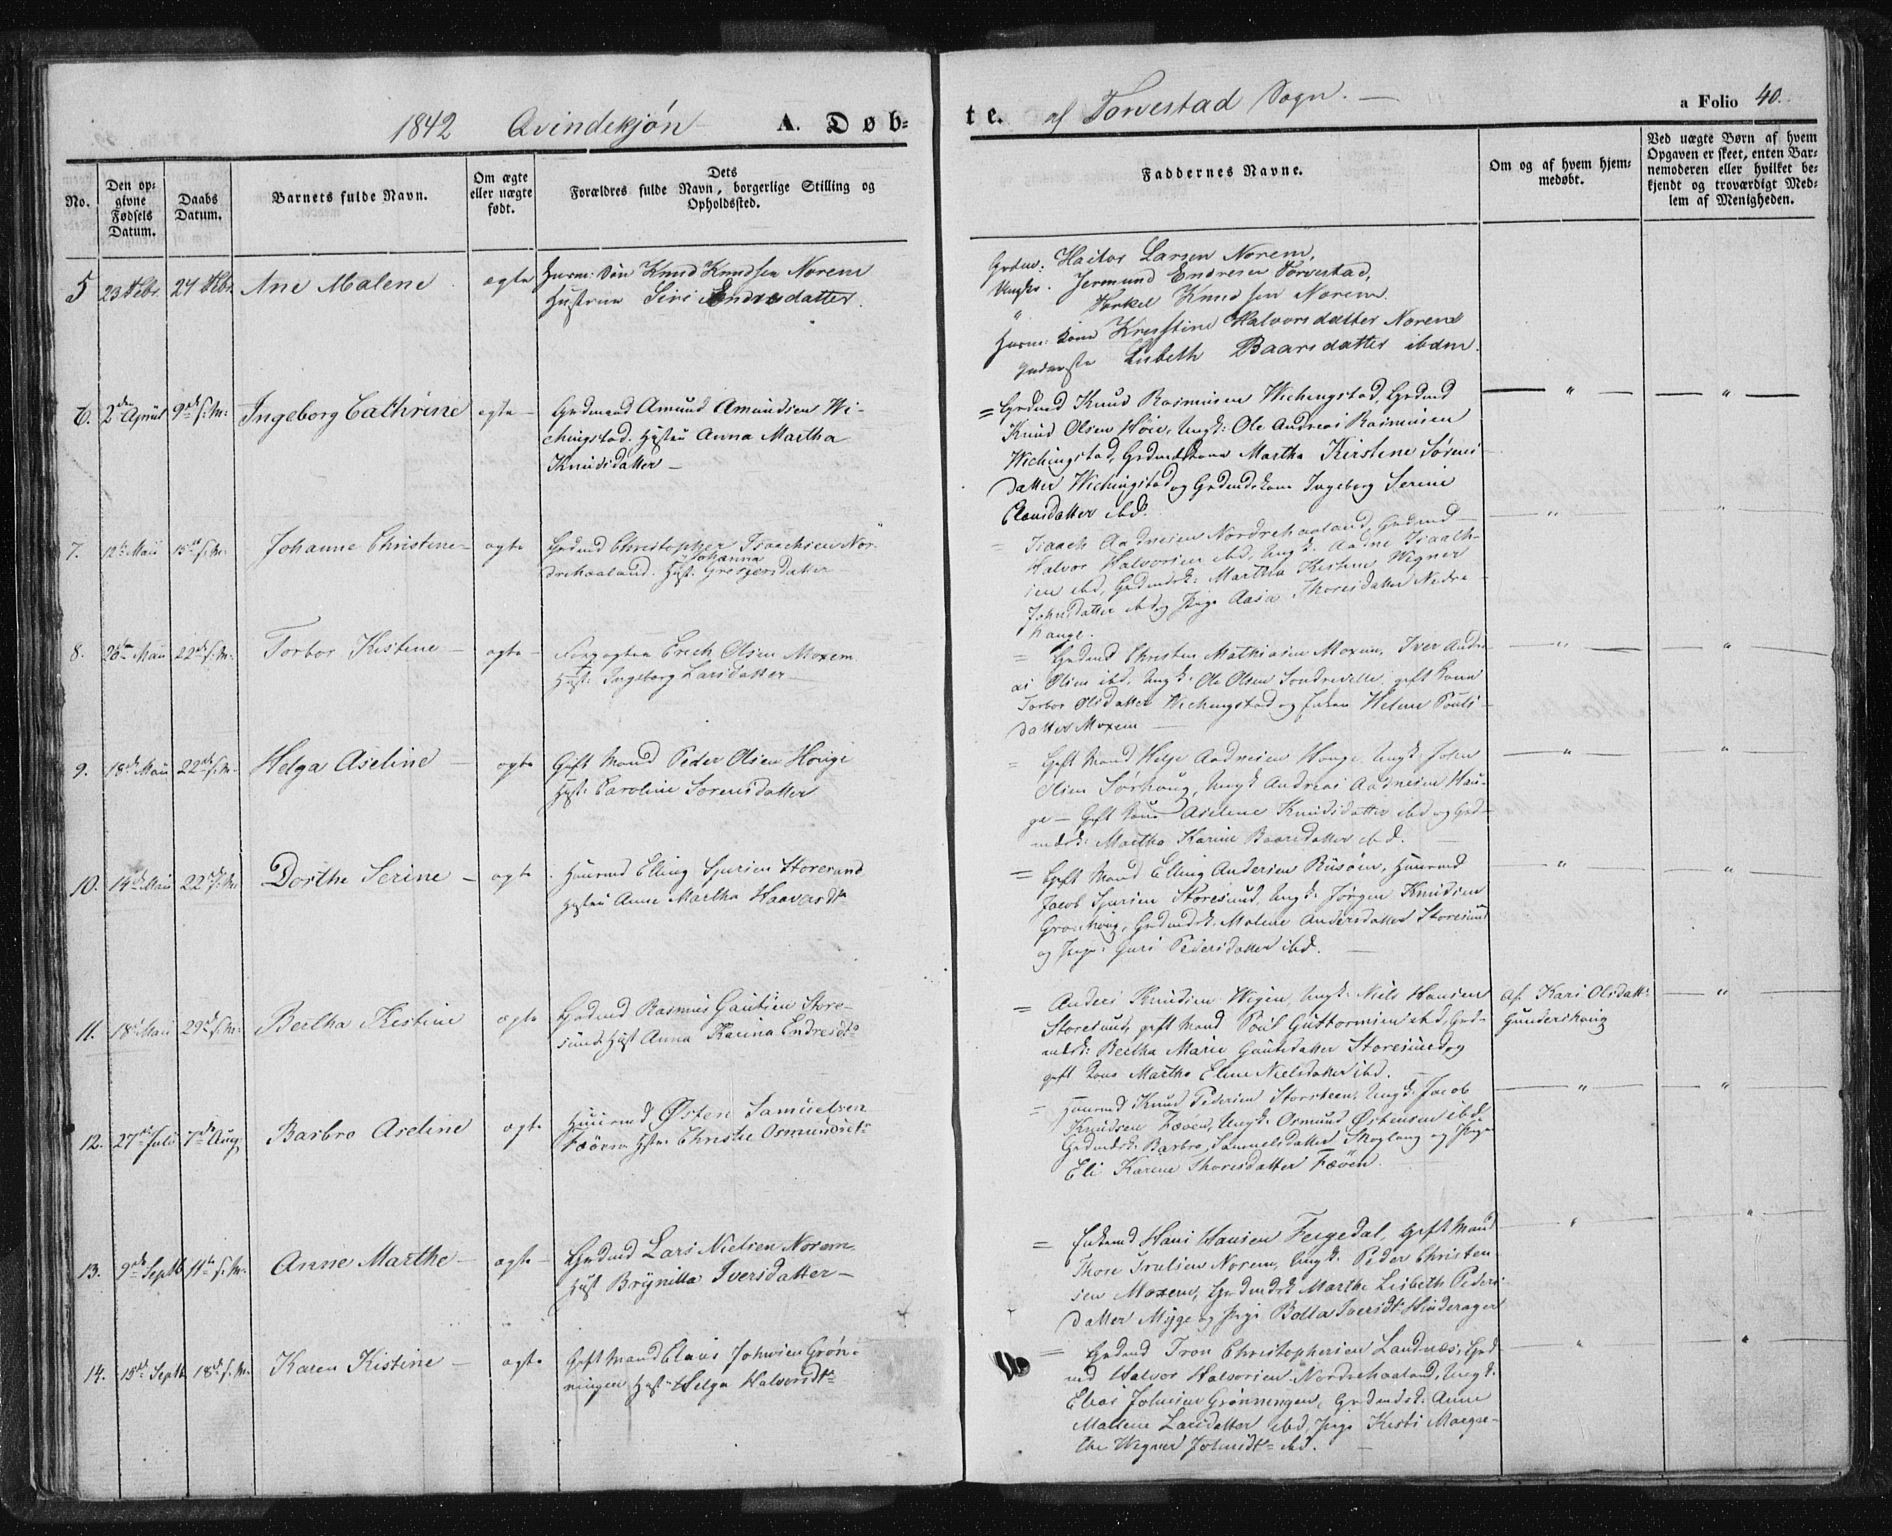 1842 Qvindekjøn A. Døb-
te. af Torvestad Sogn. —
a Folio 40.
No.
Den op-
givne
Fødsels
Datum.
Daabs
Datum.
Barnets fulde Navn.
Om ægte
eller uægte
født.
Dets
Forældres fulde Navn, borgerlige Stilling og
Opholdssted.
Faddernes Navne.
Om og af hvem hjem-
medøbt.
Ved uægte Børn af hvem
Opgaven er skeet, enten Bar-
nemoderen eller hvilket be-
kjendt og troværdigt Med-
lem af Menigheden.
5 23 Febr. 27 Febr. Ane Malene ægte
Knud Knudsen Norem
Hustrue Siri Endresdatter.
Larsen Norem,
Jermund Endresen Torvestad,
Torkel Knudsen Norem.
Halvorsdatter Norem
Lisbeth Baarsdatter ibdm.
6. 2den April 9de s. M. Ingeborg Cathrine ægte —
Grdmand Amund Amundsen Wi-
chingstad. Hustru Anna Martha
Knudsdatter —
= Grdmd Knud Rasmusen Wichingstad, Grdmd
Knud Olsen Høie, Ungk: Ole Andreas Rasmusen
Wichingstad, Grdmdskone Martha Kirstine Sørens
datter Wichingstad og Grdmdskone Ingeborg Serine
Clausdatter ibd.
7. 12te Mai 15de s. M. Johanne Christine — ægte
Grdmd Christopher Isaachsen Nor-
drehaaland. Hust. Johanna Gregersdatter
= Isaach Aadnesen Nordrehaaland, Grdmd
Halvor Halvorsen ibd, Ungk: Aadne Isaach-
sen ibd, Grdmdsk: Martha Kistine Wigner
Johnsdatter ibd og Pige Aasa Thoresdatter Nedre
hauge.
8. Mai 22de s. M. Torbor Kistine — ægte —
Erich Olsen Moxem
Hust: Ingeborg Larsdatter —
= Grdmd Christen Mathiasen Moxem, Iver Andre
as Olsen ibd. Ungk: Ole Olsen gift Kone
Torbor Olsdatter Wichingstad og Enken Helene Pouls
datter Moxem —
9. 18de Mai 22de s. M. Helga Aseline — ægte
Gift Mand Peder Olsen Houge
Hust: Caroline Sørensdatter
= Gift Mand Helje Aadnesen Houge, Ungk: John
Olsen Sørhoug, Ungk Andreas Aadnesen Hau-
ge — Gift Kone Aselene Knudsdatter ibd og Grd-
mdsk: Martha Karine Baarsdatter ibd.
10. 14de Mai 22de s. M. Dorthe Serine — ægte
Huusmd Elling Sjursen Storesund
Hustru Anne Martha Haavardsdr
= Gift Mand Elling Andersen Risøen, Huusmd
Jacob Sjursen Storesund, Ungk: Jørgen Knudsen
Gronhoug, Grdmdsk: Malene Andersdatter Storesund
og Pige: Guri Pedersdatter ibd. —
11. 18de Mai 29de s. M. Bertha Kistine ægte
Grdmd Rasmus Gautsen Store-
sund. Hust Anna Karina Endresdtr
= Anders Knudsen Wigen, Ungk: Niels Hansen
Storesund, gift Mand Poul Guttormsen ibd, Grd-
mdsk: Bertha Marie Gautsdatter Storesund og
gift Kone Martha Eline Nielsdatter ibd.
Af Kari Olsdatt:
Gunderskoug
12. 27de Juli 7de Aug. Barbro Aseline ægte
Huusmd Østen Samuelsen
Fæøen Hst: Christie Ormundsdtr
= Huusmd Knud Pedersen Storsteen, Ungk: Jacob
Knudsen Fæøen, Ungk: Ormund Østensen ibd.
Grdmdsk: Barbro Samuelsdatter Skogland og Pige
Eli Karine Thoresdatter Fæøen.
13. 9de Septb 11te s. M. Anne Marthe — ægte —
Grdmd Lars Nielsen Norem
Hust Brynilla Iversdatter —
= Enkemd Hans Hansen Feigedal, Gift Mand
Thore Trulsen Norem, Ungk: Peder Christen-
sen Moxem, Grdmdsk Marthe Lisbeth Peders-
datter Mÿge og Pige Bolla Iversdtr Hinderager
14. 15de Septb. 18de s. M. Karen Kistine — ægte
Gift Mand Claus Johnsen Grøn-
ningen Hust: Helga Halvorsdtr
= Grdmd Tron Christophersen Landnæs, Grd
md Halvor Halvorsen Nordrehaaland, Ungk:
Elias Johnsen Grønningen, Grdmdsk: Anne
Mallene Larsdatter ibd, Pige Kirsti Marge-
the Wigner Johnsdtr ibd. —